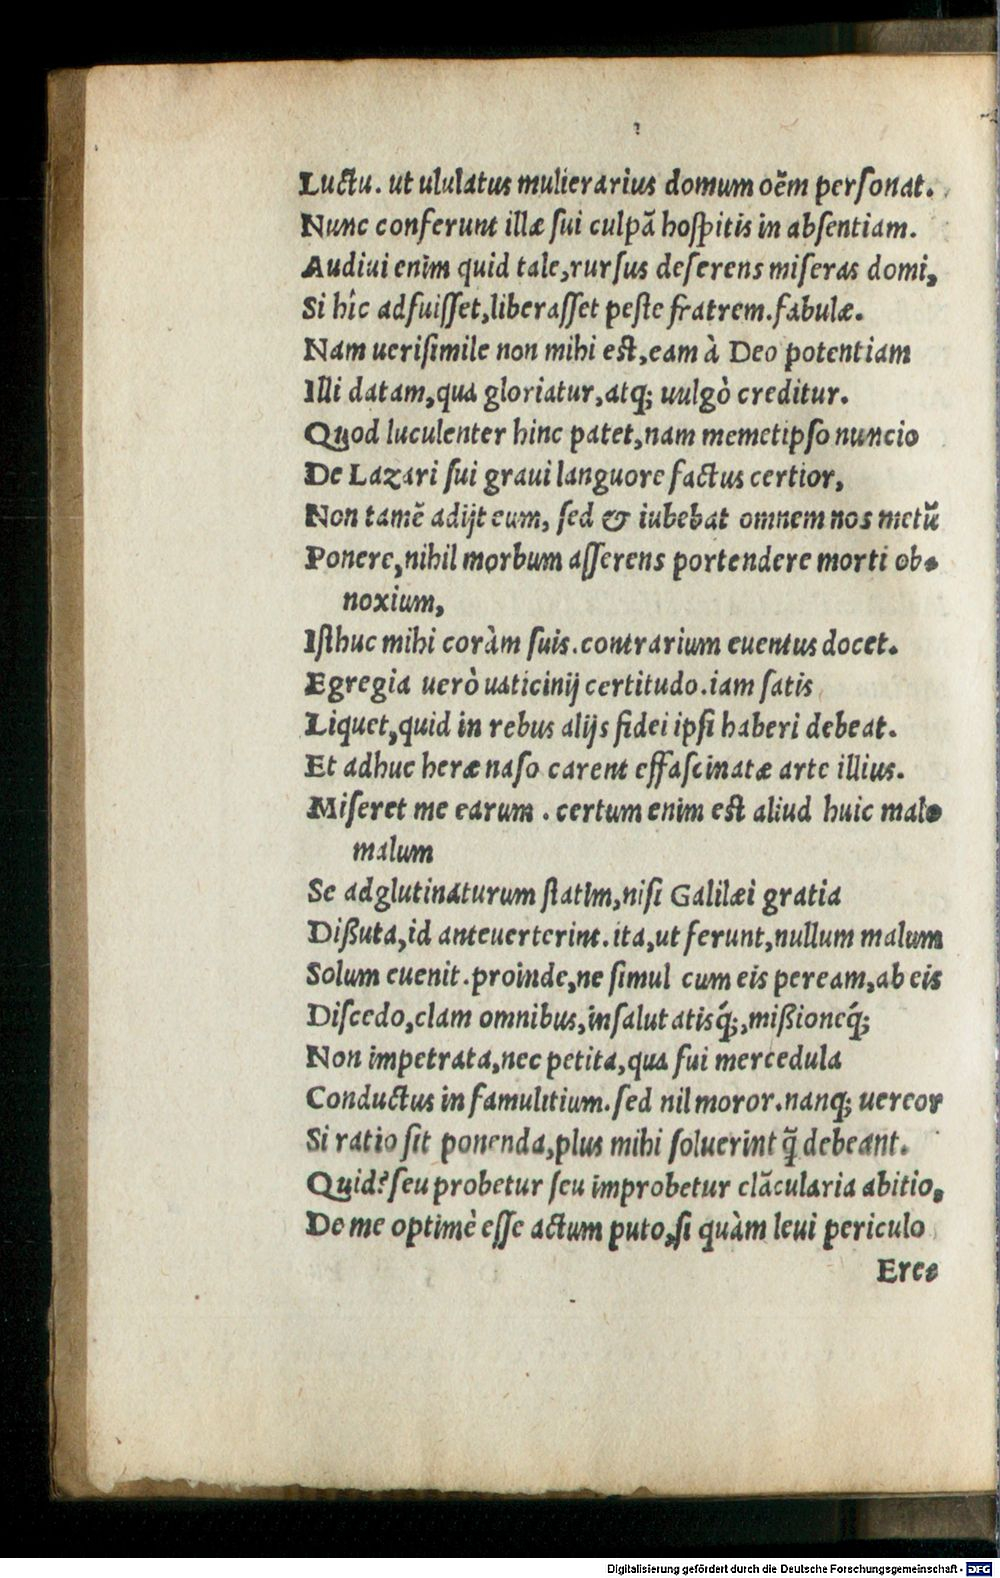 Luctu. ut ululatus mulierarius domum oẽm perſonat.
Nunc conferunt illæ ſui culpã hoſpitis in abſentiam.
Audiui enim quid tale, rurſus deſerens miſeras domi,
Si hîc adfuiſſet, liberaſſet peſte fratrem. fabulæ.
Nam ueriſimile non mihi eſt, eam à Deo potentiam
Illi datam, qua gloriatur, atq; uulgò creditur.
Quod luculenter hinc patet, nam memetipſo nuncio
De Lazari ſui graui languore factus certior,
Non tamẽ adijt eum, ſed & iubebat omnem nos metũ
Ponere, nihil morbum aſſerens portendere morti ob-
noxium,
Iſthuc mihi coràm ſuis. contrarium euentus docet.
Egregia uerò uaticinij certitudo. iam ſatis
Liquet, quid in rebus alijs fidei ipſi haberi debeat.
Et adhuc heræ naſo carent effaſcinatæ arte illius.
Miſeret me earum. certum enim eſt aliud huic malo
malum
Se adglutinaturum ſtatim, niſi Galilæi gratia
Dißuta, id anteuerterint. ita, ut ferunt, nullum malum
Solum euenit. proinde, ne ſimul cum eis peream, ab eis
Diſcedo, clam omnibus, inſalutatisq́;, mißioneq́;
Non impetrata, nec petita, qua fui mercedula
Conductus in famulitium. ſed nil moror. nanq; uereor
Si ratio ſit ponenda, plus mihi ſoluerint q̃ debeant.
Quid? ſeu probetur ſeu improbetur clãcularia abitio,
De me optimè eſſe actum puto, ſi quàm leui periculo
Ere-
Digitalisierung gefördert durch die Deutsche Forschungsgemeinschaft - DFG